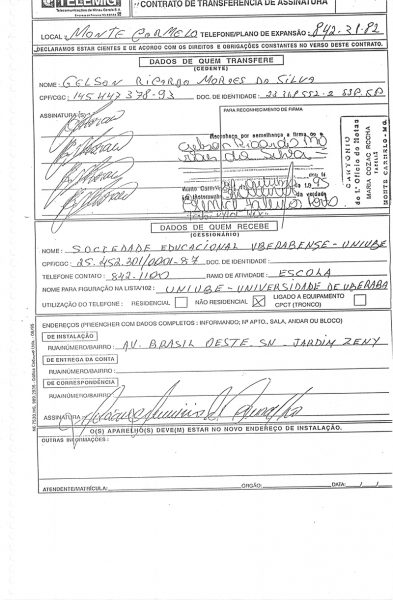 TELEMIG
Telecomunicações de Minas Gerais S.A.
CONTRATO DE TRANSFERÊNCIA DE ASSINATURA
LOCAL: MONTE CARMELO TELEFONE/PLANO DE EXPANSÃO: 842.31.82
DECLARAMOS ESTAR CIENTES E DE ACORDO COM OS DIREITOS E OBRIGAÇÕES CONSTANTES NO VERSO DESTE CONTRATO.
DADOS DE QUEM TRANSFERE
(CEDENTE)
NOME: GELSON RICARDO MORAES DA SILVA
CPF/CGC: 145.443.378-93 DOC. DE IDENTIDADE: SSP.SP
ASSINATURA (S):
PARA RECONHECIMENTO DE FIRMA
Reconheço por semelhança a firma
Gelson Ricardo Mo
raes da Silva
da verdade
CARTÓRIO
do 1.º Ofício de Notas
MARIA COZAC ROCHA
TABELIÃ
MONTE CARMELO, MG
DADOS DE QUEM RECEBE
(CESSIONÁRIO)
NOME: SOCIEDADE EDUCACIONAL UBERABENSE - UNIUBE
CPF/CGC: 25.452.301/0001-87 DOC. DE IDENTIDADE:
TELEFONE CONTATO: 842.1100 RAMO DE ATIVIDADE: ESCOLA
NOME PARA FIGURAÇÃO NA LISTA/102: UNIUBE - UNIVERSIDADE DE UBERABA
UTILIZAÇÃO DO TELEFONE: RESIDENCIAL NÃO RESIDENCIAL X LIGADO A EQUIPAMENTO
CPCT (TRONCO)
ENDEREÇOS (PREENCHER COM DADOS COMPLETOS: INFORMANDO; Nº APTO., SALA, ANDAR OU BLOCO)
DE INSTALAÇÃO
RUA/NÚMERO/BAIRRO: AV. BRASIL OESTE SN - JARDIM ZENY
DE ENTREGA DA CONTA
RUA/NÚMERO/BAIRRO:
DE CORRESPONDÊNCIA
RUA/NÚMERO/BAIRRO:
ASSINATURA:
O(S) APARELHO(S) DEVE(M) ESTAR NO NOVO ENDEREÇO DE INSTALAÇÃO.
OUTRAS INFORMAÇÕES:
ATENDENTE/MATRÍCULA: ÓRGÃO: DATA: / /